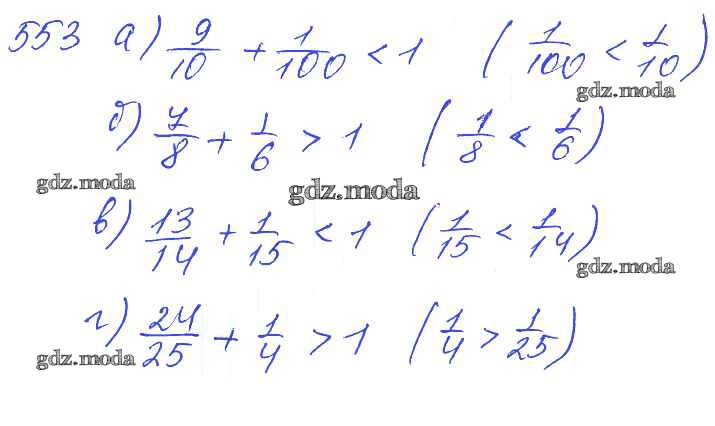 553 а) 9/10 + 1/100 < 1 (1/100 < 1/10)
gdz.moda
б) 7/8 + 1/6 > 1 (1/8 < 1/6)
gdz.moda
gdz.moda
в) 13/14 + 1/15 < 1 (1/15 < 1/14)
gdz.moda
г) 24/25 + 1/4 > 1 (1/4 > 1/25)
gdz.moda